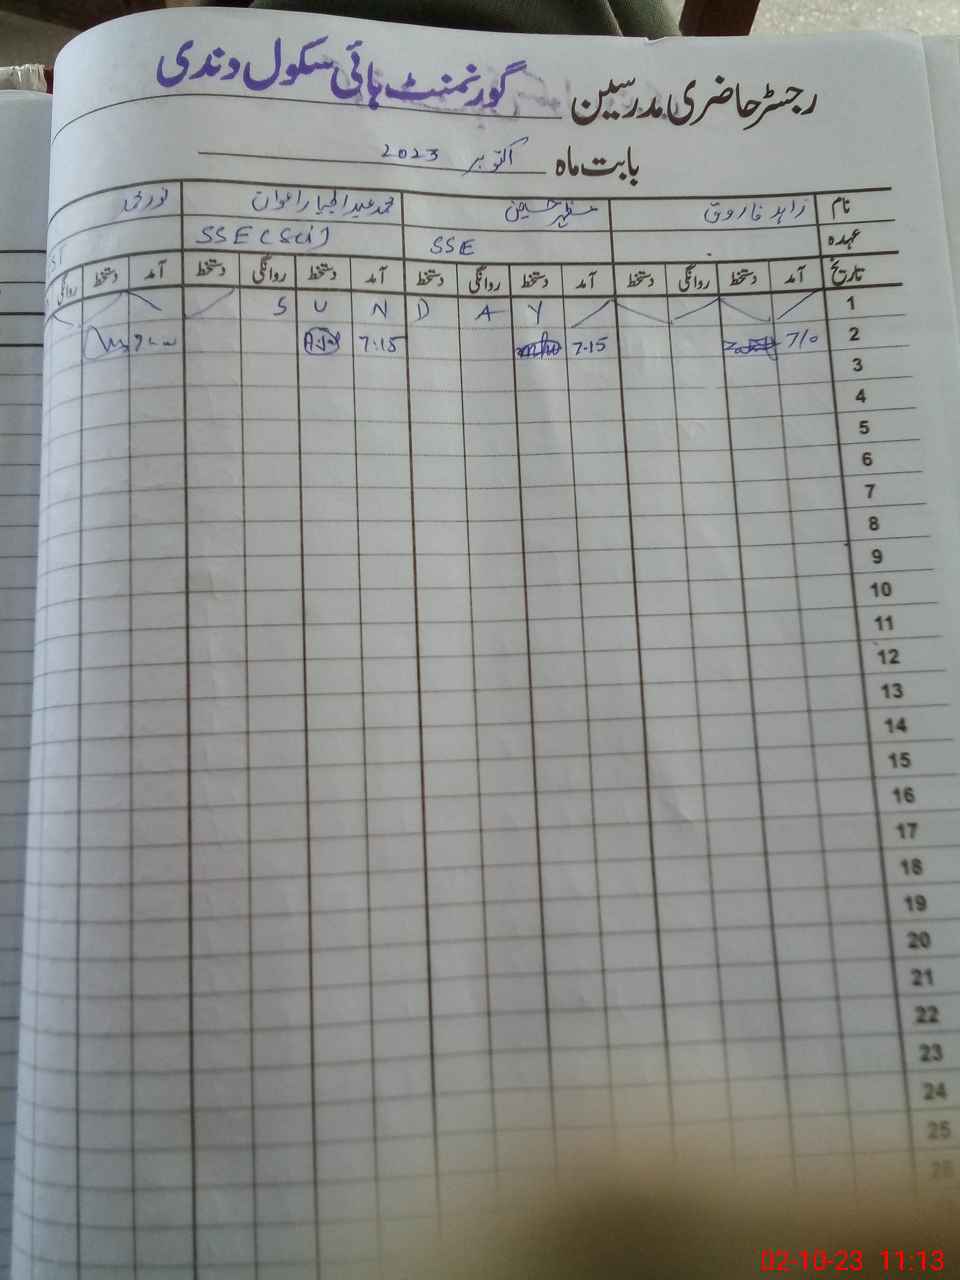 رجسٹر حاضری مدرسین گورنمنٹ ہائی سکول دندی
بابت ماہ اکتوبر 2023
نام زاہد فاروق مظہر حسین محمد عبدالجبار اعوان
عہدہ SSE SSE (Sci)
تاریخ آمد دستخط روانگی دستخط آمد دستخط روانگی دستخط آمد دستخط روانگی دستخط آمد دستخط روانگی
1 S U N D A Y
2 7/0 7.15 7:15
3
4
5
6
7
8
9
10
11
12
13
14
15
16
17
18
19
20
21
22
23
24
25
26
02-10-23 11:13